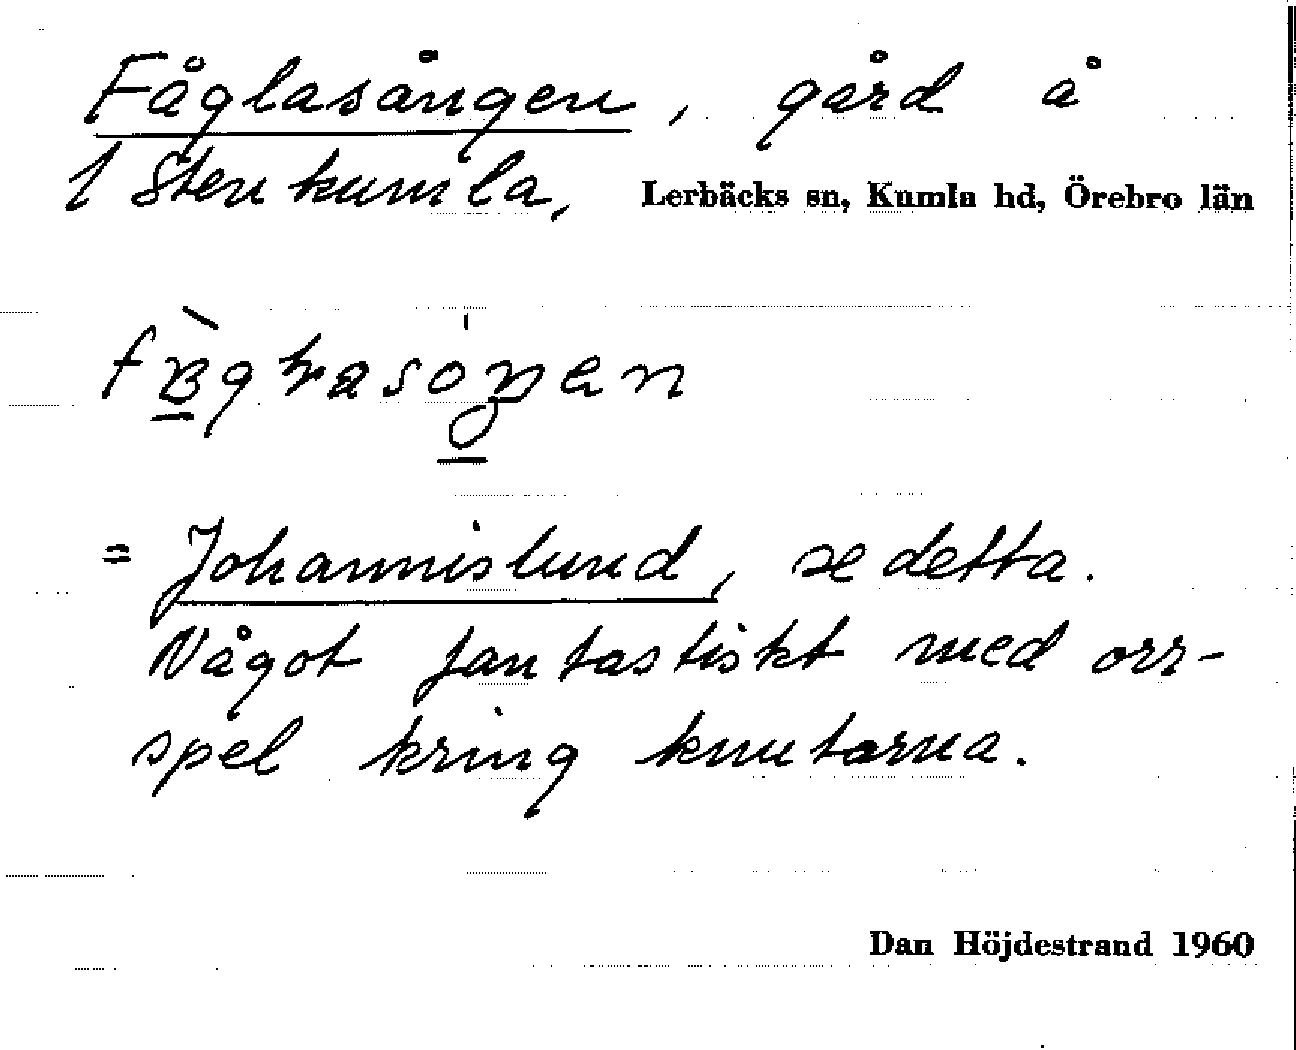 Fåglasången, gård å
1 Stenkumla, Lerbäcks sn, Kumla hd, Örebro län
= Johannislund, se detta.
Något fantastiskt med orr-
spel kring knutarna.
Dan Höjdestrand 1960